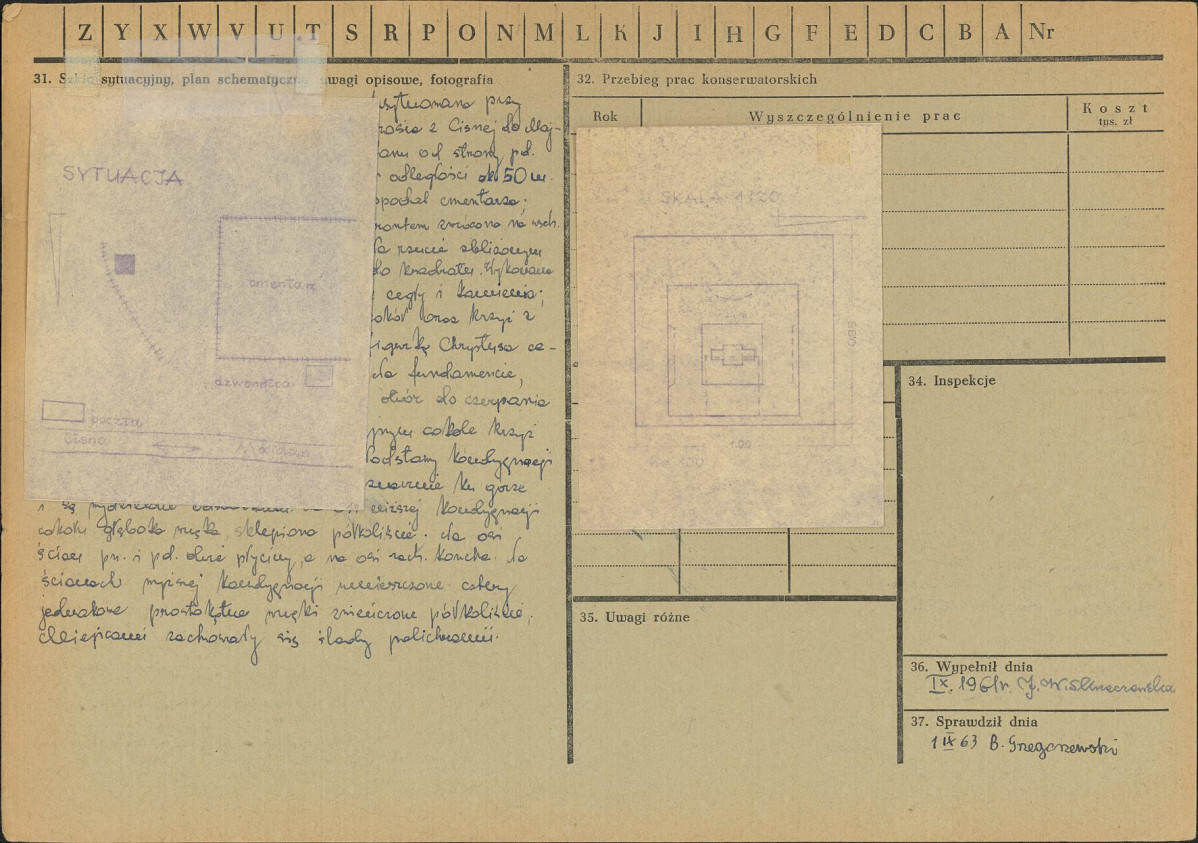 Z Y X W V U T S R P O N M L K J I H G F E D C B A Nr
31. Szkic sytuacyjny, plan schematyczny, uwagi opisowe, fotografia
sytuowana przy
z Cisnej do Maj-
od strony pd.
odległości ok 50 m.
cmentarza.
frontem zwrócona na wsch.
Na rzucie zbliżonym
do kwadratu. Wykonana
cegły i kamienia;
oraz krzyż z
figurką Chrystusa ce-
Na fundamencie,
otwór do czerpania
cokole krzyż
Podstawy kondygnacji
ku górze
niższej kondygnacji
cokołu głęboka wnęka, sklepiona półkoliście. Na osi
ścian pn. i pd. dwie płyciny, a na osi zach. koncha. Na
ścianach wyższej kondygnacji umieszczone cztery
jednakowe prostokątne wnęki zwieńczone półkoliście.
Miejscami zachowały się ślady polichromii.
SYTUACJA
cmentarz
dzwonnica
poczta
Cisna
Majdan
32. Przebieg prac konserwatorskich
Rok
Wyszczególnienie prac
Koszt
tys. zł
SKALA 1:20
1.00
34. Inspekcje
35. Uwagi różne
36. Wypełnił dnia
IX. 1961r.
37. Sprawdził dnia
1 IX 63 B. Grzegorzewski